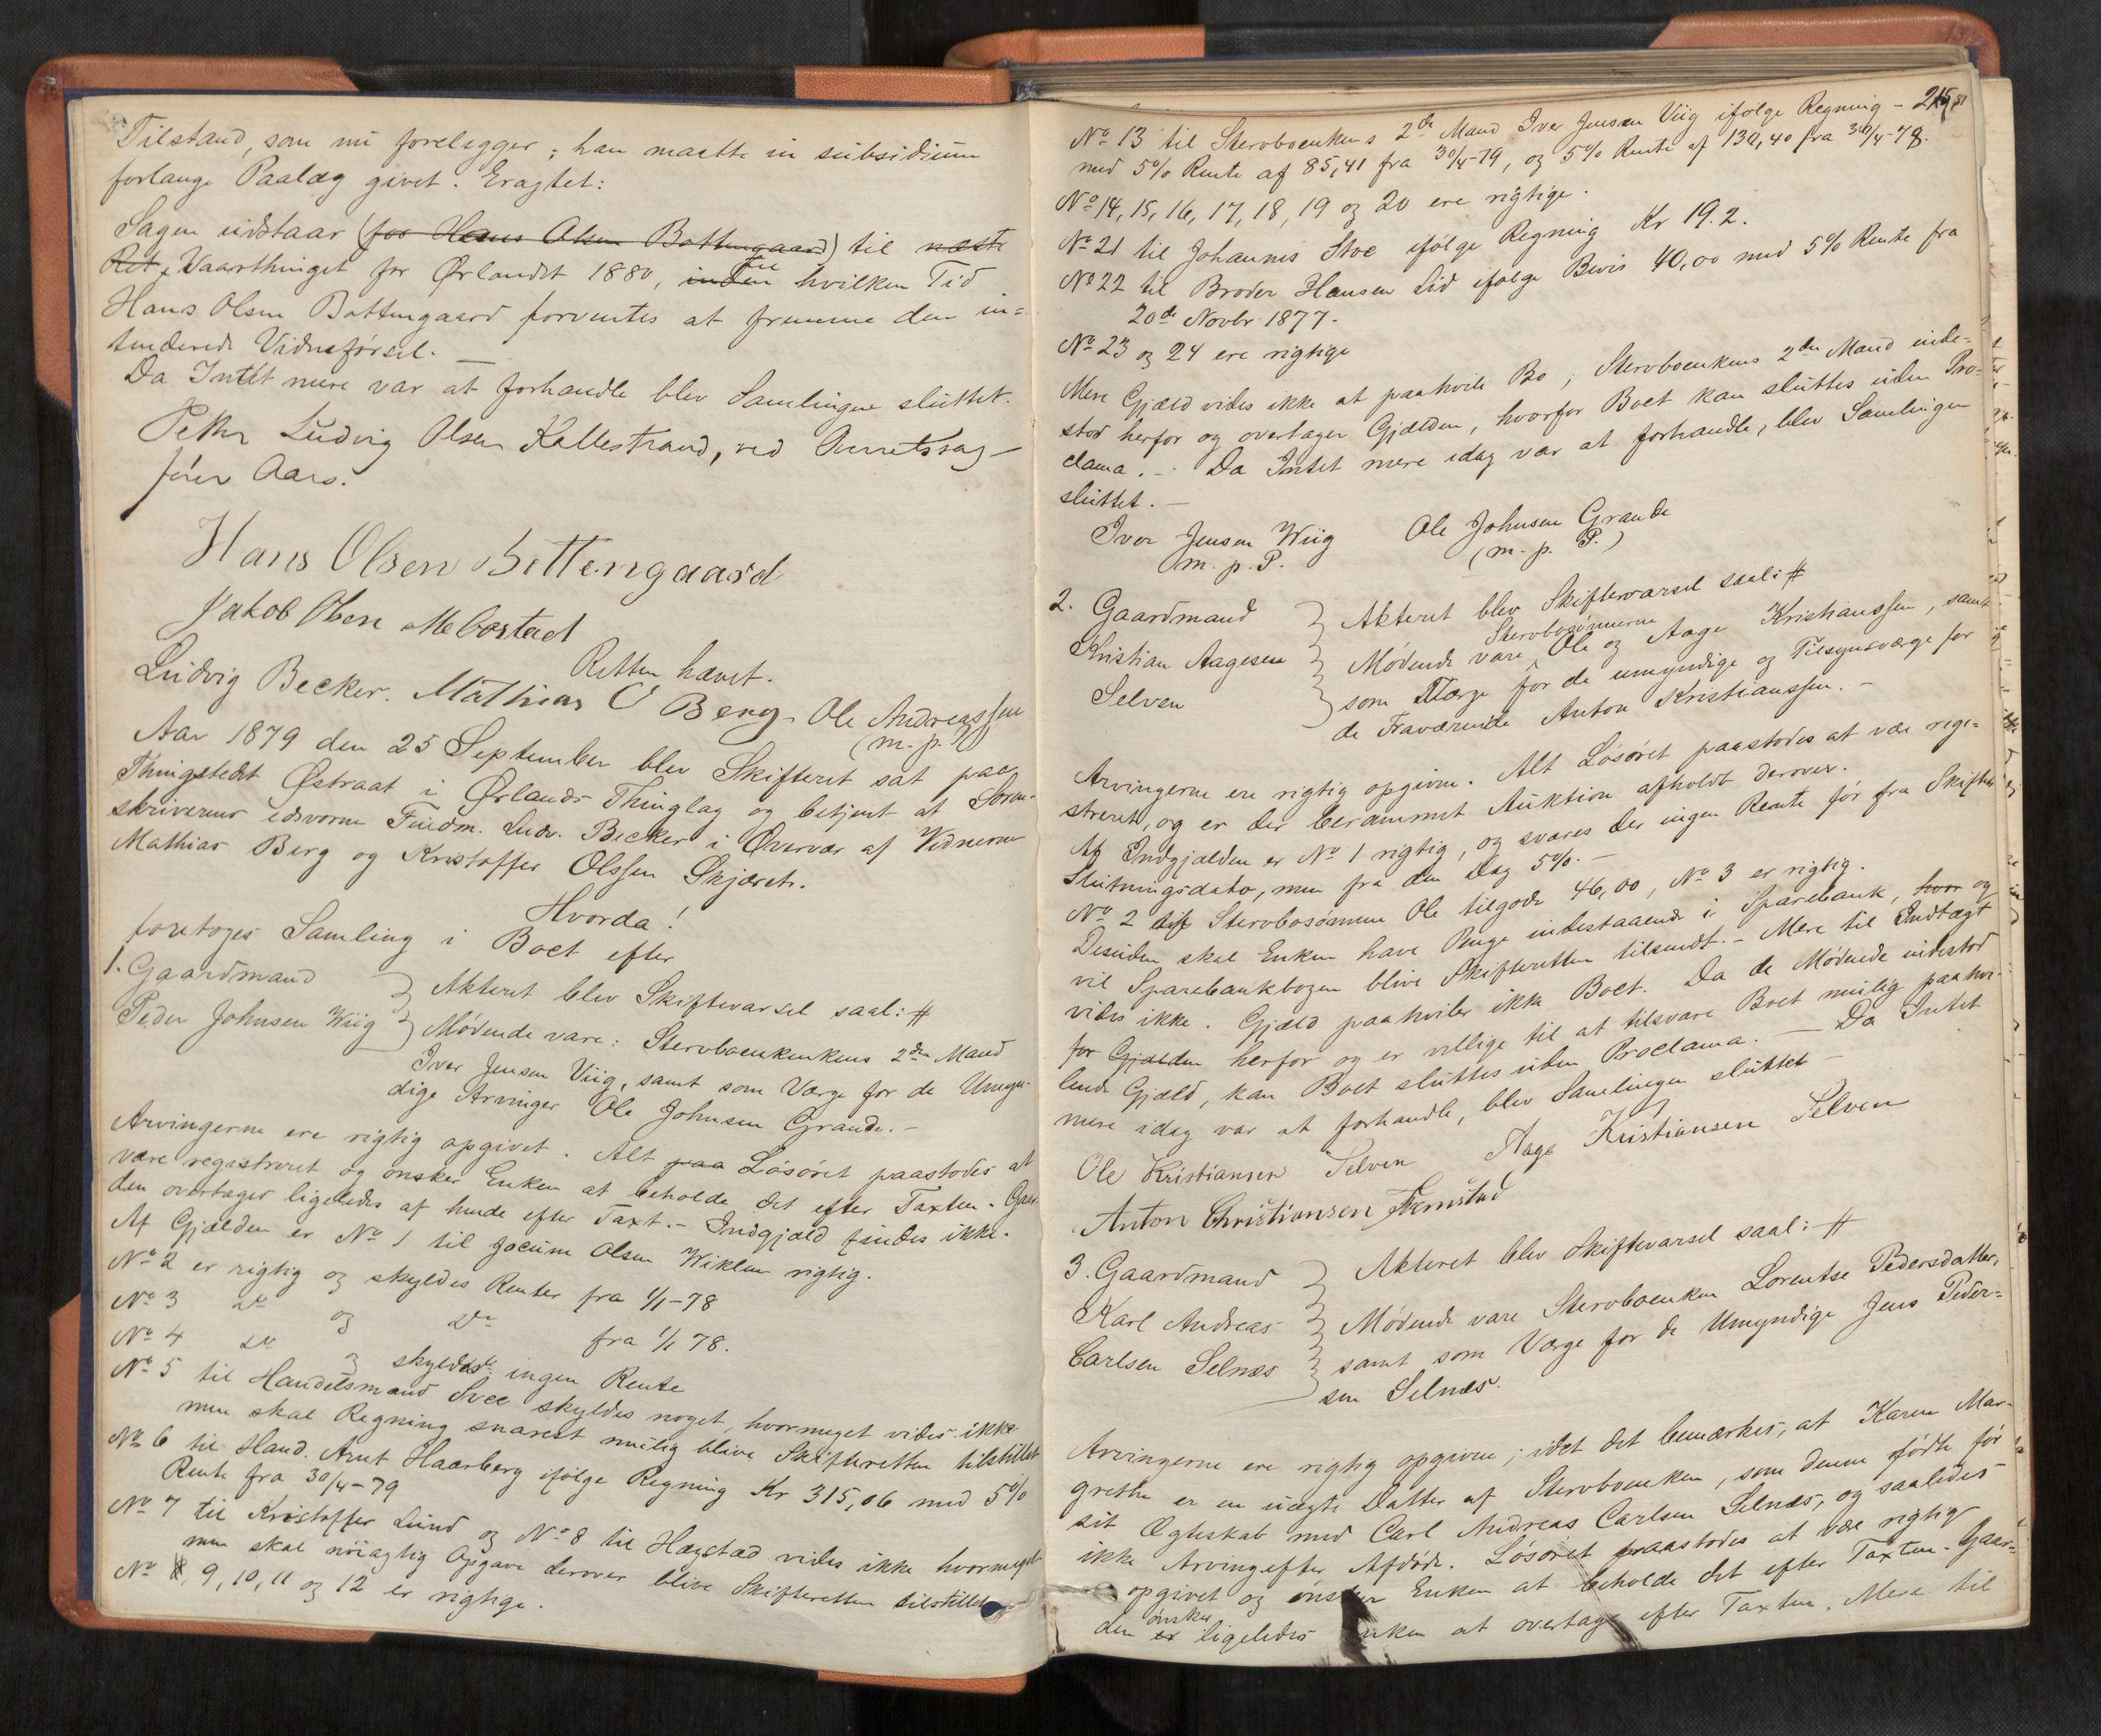 Tilstand, som nu foreligger; han maatte in subsidium
forlange Paalæg givet. Eragtet:
Sagen udstaar (for Hans Olsen Bottengaard) til næste
Ret, Vaarthinget for Ørlandet 1880, inden hvilken Tid
Hans Olsen Bottengaard forventes at fremme den in=
tenderede Vidneførsel. —
Da Intet mere var at forhandle blev Samlingen sluttet.
Petter Ludvig Olsen Kallestrand, ved Overretssag-
fører Aars.
Hans Olsen Bottengaard
Jakob Olsen Mebostad
Retten hævet.
Ludvig Becker. Mathias C Berg. Ole Andreassen
(m. p. P.)
Aar 1879 den 25 September blev Skifteret sat paa
Thingstedet Østraat i Ørlands Thinglag og betjent af Soren-
skriverens edsvorne Fuldm. Ludv. Becker i Overvær af Vidnerne
Mathias Berg og Kristoffer Olssen Skjæret.
Hvorda!
foretoges Samling i Boet efter
1. Gaardmand
Peder Johnsen Wiig
Akteret blev Skiftevarsel saal: #
Mødende vare: Stervboenkenkens 2den Mand
Iver Jensen Viig, samt som Værge for de Umyn-
dige Arvinger Ole Johnsen Grande. —
Arvingerne ere rigtig opgivet. Alt paa Løsøret paastodes at
være registreret og ønsker Enken at beholde det efter Taxten. Gaar-
den overtages ligeledes af hende efter Taxt. — Indgjæld findes ikke.
Af Gjælden er No 1 til Jocum Olsen Wiklem rigtig.
No 2 er rigtig og skyldes Renter fra 1/1-78
No 3 do og do fra 1/1 78.
No 4 do og skyldes ingen Rente
No 5 til Handelsmand Svee skyldes noget, hvormeget vides ikke
men skal Regning snarest mulig blive Skifteretten tilstillet
No 6 til Hand. Arnt Haarberg ifølge Regning Kr 315,06 med 5%
Rente fra 30/4-79
No 7 til Kristoffer Lund og No 8 til Hægstad vides ikke hvormeget
men skal nöiagtig Opgave derover blive Skifteretten tilstillet
No 8, 9, 10, 11 og 12 er rigtige.
215
No 13 til Stervboenkens 2de Mand Iver Jensen Viig ifølge Regning -
med 5% Rente af 85,41 fra 30/4-79, og 5% Rente af 130,40 fra 30/4-78.
No 14, 15, 16, 17, 18, 19 og 20 ere rigtige.
No 21 til Johannes Stoe ifølge Regning Kr 19.2.
No 22 til Broder Hansen Lid ifølge Bevis 40,00 med 5% Rente fra
20de Novbr 1877.
No 23 og 24 ere rigtige
Mere Gjæld vides ikke at paahvile Bo; Stervboenkens 2den Mand inde-
stod herfor og overtager Gjælden, hvorfor Boet kan sluttes uden Pro-
clama. — Da Intet mere idag var at forhandle, blev Samlingen
sluttet. —
Iver Jensen Wiig Ole Johnsen Grande
m. p. P. (m. p. P.)
2. Gaardmand
Kristian Aagesen
Selven
Akteret blev Skiftevarsel saal: #
Stervbosønnerne
Mødende vare Ole og Aage Kristianssen, samt
som Værge for de umyndige og Tilsynsværge for
de Fraværende Anton Kristianssen. —
Arvingerne ere rigtig opgivne. Alt Løsøret paastodes at være regi=
streret, og er der berammet Auktion afholdt derover.
Af Indgjælden er No 1 rigtig, og svares der ingen Rente før fra Skiftets
Slutningsdato, men fra den Dag 5%. —
No 2 Stervbosønnen Ole tilgode 46,00, No 3 er rigtig.
Desuden skal Enken have Penge indestaaende i Sparebank, hvor og
vil Sparebankbogen blive Skifteretten tilsendt. — Mere til Indtægt
vides ikke. Gjæld paahviler ikke Boet. Da de Mødende indestod
for Gjælden herfor og er villige til at tilsvare Boet mulig paahvi-
lende Gjæld, kan Boet sluttes uden Proclama. — Da Intet
mere idag var at forhandle, blev Samlingen sluttet —
Ole Kristiansen Selven Aage Kristiansen Selven
Anton Christiansen
3. Gaardmand
Karl Andreas
Carlsen Selnæs
Akteret blev Skiftevarsel saal: #
Mødende vare Stervboenken Lorentse Pedersdatter,
samt som Værge for de Umyndige Jens Peder=
sen Selnæs.
Arvingerne ere rigtig opgivne; idet det bemærkes, at Karen Mar-
grethe er en uægte Datter af Stervboenken, som denne fødte før
sit Ægteskab med Carl Andreas Carlsen Selnæs, og saaledes
ikke Arving efter Afdøde. Løsøret paastodes at være rigtig
opgivet og ønsker Enken at beholde det efter Taxten. Gaar=
ønsker
den er ligeledes Enken at overtage efter Taxten. Mere til